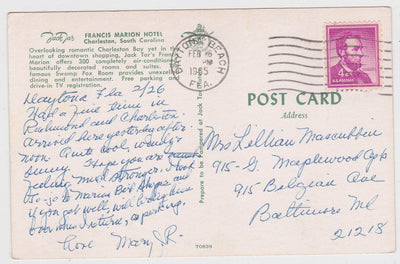 Jack Tar's
FRANCIS MARION HOTEL
Charleston, South Carolina
Overlooking romantic Charleston Bay yet in the
heart of downtown shopping, Jack Tar's Francis
Marion offers 300 completely air-conditioned,
beautifully decorated rooms and suites. The
famous Swamp Fox Room provides excellent
dining and entertainment. Free parking and
drive-in TV registration.
Daytona Fla 2/26
Had a fine time in
Richmond and Charleston.
Arrived here yesterday after-
noon. Quite cool, windy,
sunny. Hope you are
feeling much stronger.
to go to Marine
if you get well, will
over when I return, as
Love Mary
DAYTONA BEACH
FEB
PM
1965
FLA.
4¢
U.S. POSTAGE
POST CARD
Address
Mrs Lillian
915-G Maplewood Apts
915 Belgian Ave
Baltimore Md
21218
70839